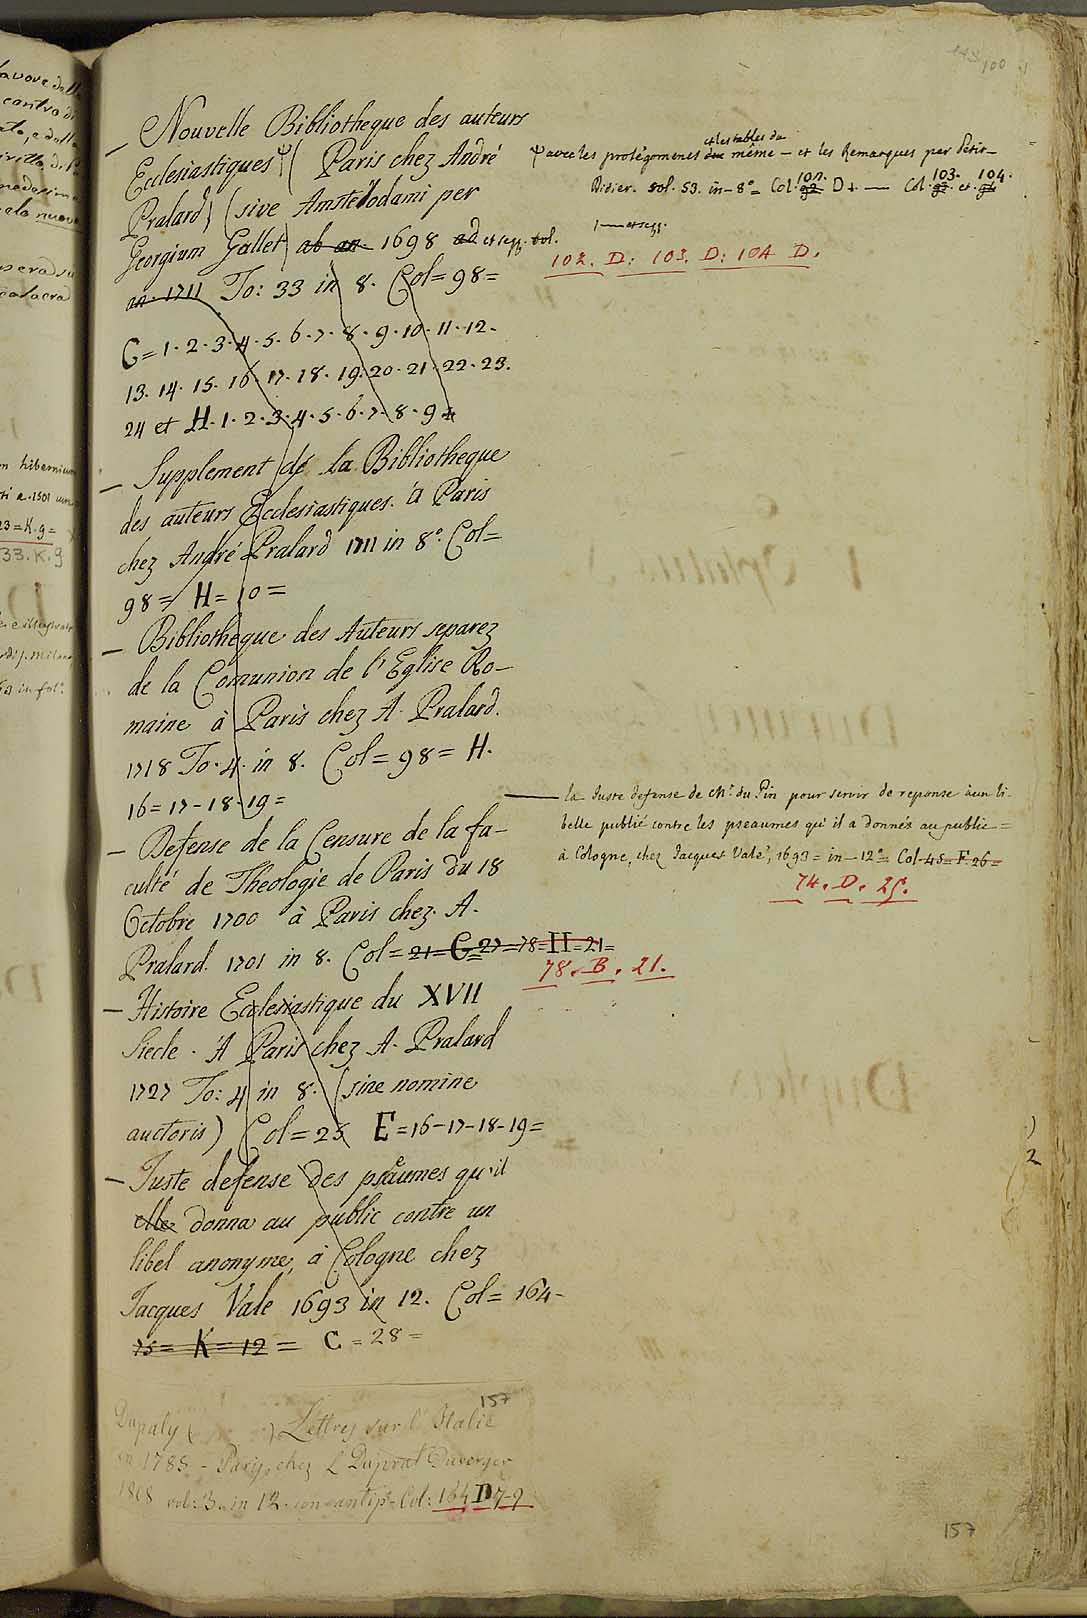 143 100
— Nouvelle Bibliotheque des auteurs
Ecclesiastiques Ψ ( Paris chez André
Pralard) (sive Amstelodami per
Georgium Gallet) ab an. 1698 ad et seqq. vol.
an. 1711 To: 33 in 8. Col = 98 =
G = 1. 2. 3. 4. 5. 6. 7. 8. 9. 10. 11. 12.
13. 14. 15. 16. 17. 18. 19. 20. 21. 22. 23.
24 et H. 1. 2. 3. 4. 5. 6. 7. 8. 9
— Supplement de la Bibliotheque
des auteurs Ecclesiastiques. à Paris
chez André Pralard 1711 in 8º. Col =
98 = H = 10 =
— Bibliotheque des Auteurs separez
de la Comunion de l'Eglise Ro-
maine à Paris chez A. Pralard.
1718 To. 4. in 8. Col = 98 = H.
16 = 17 - 18 - 19 =
— Defense de la Censure de la fa-
culté de Theologie de Paris du 18
Octobre 1700 à Paris chez. A.
Pralard. 1701 in 8. Col = 21 = G = 27 = 78 = H = 21 =
78. B. 21.
— Histoire Ecclesiastique du XVII
Siecle. A Paris chez A. Pralard
1727 To: 4 in 8. (sine nomine
auctoris) Col = 25 E = 16 - 17 - 18 - 19 =
— Juste defense des pseaumes qu'il
donna au public contre un
libel anonyme, à Cologne chez
Jacques Vale 1693 in 12. Col = 164 -
75 = K = 12 = C = 28 =
157
Dupaty ( ) Lettres sur l'Italie
en 1785. - Paris, chez L Duprat Duverger
1808 vol: 3. in 12. con antip. Col: 164 D 7-9
Ψ avec les prolégomenes et les tables du même — et les Remarques par Petit-
Didier. vol. 53. in-8º = Col. 102. D + — Col. 103. et 104.
1 — et seqq.
102. D: 103. D: 104 D.
— la Juste defense de Mr. du Pin pour servir de reponse à un li-
belle publié contre les pseaumes qu'il a donnés au public =
à Cologne, chez Jacques Valé, 1693 = in - 12º = Col. 45 = F. 26 =
74. D. 25.
157